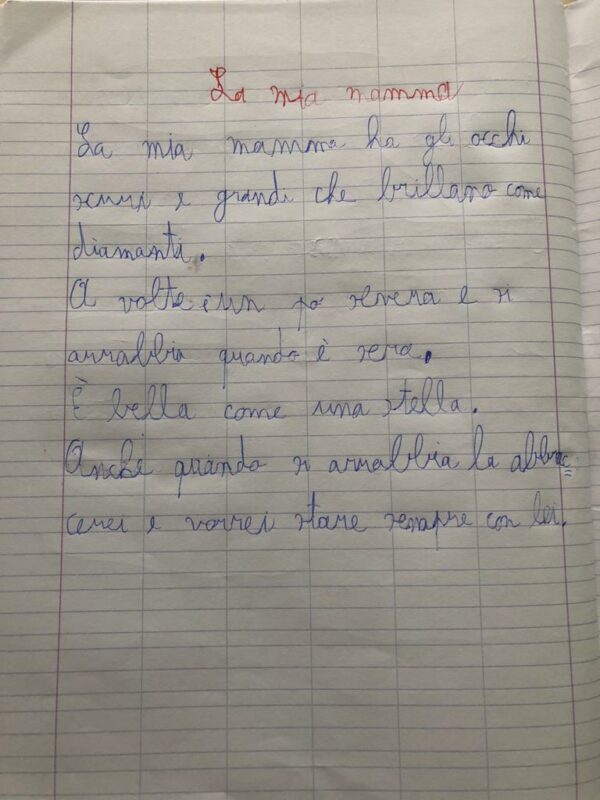 La mia mamma
La mia mamma ha gli occhi
scuri e grandi che brillano come
diamanti.
A volte è un po severa e si
arrabbia quando è sera.
È bella come una stella.
Anche quando si arrabbia la abbrac=
cerei e vorrei stare sempre con lei.